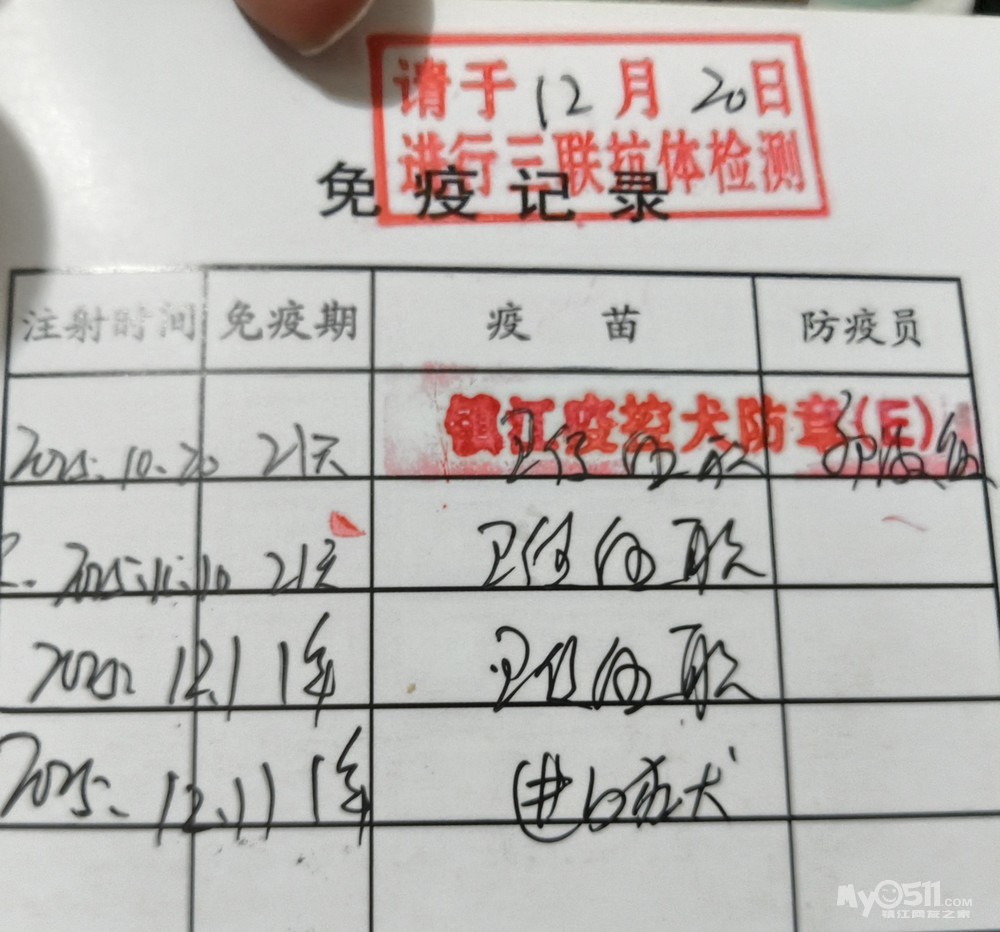 请于12月20日
进行三联抗体检测
免疫记录
注射时间 免疫期 疫苗 防疫员
镇江疫控犬防章(丘)
2025.10.20 21天 卫佳伍联
2025.11.10 21天 卫佳伍联
2025.12.1 1年 卫佳伍联
2025.12.11 1年 进口狂犬
My0511.COM
镇江网友之家